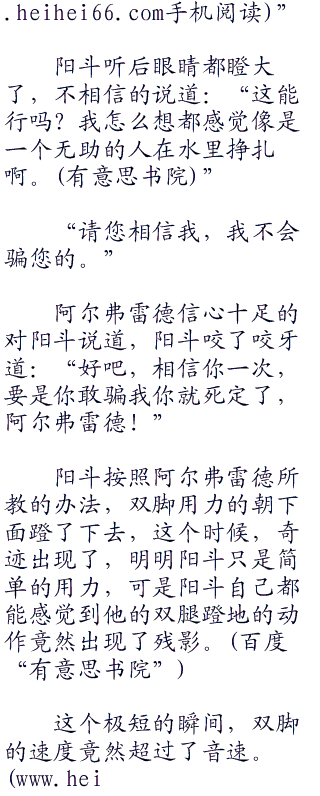 .heihei66.com手机阅读)”
阳斗听后眼睛都瞪大
了，不相信的说道：“这能
行吗？我怎么想都感觉像是
一个无助的人在水里挣扎
啊。(有意思书院)”
“请您相信我，我不会
骗您的。”
阿尔弗雷德信心十足的
对阳斗说道，阳斗咬了咬牙
道：“好吧，相信你一次，
要是你敢骗我你就死定了，
阿尔弗雷德！”
阳斗按照阿尔弗雷德所
教的办法，双脚用力的朝下
面蹬了下去，这个时候，奇
迹出现了，明明阳斗只是简
单的用力，可是阳斗自己都
能感觉到他的双腿蹬地的动
作竟然出现了残影。(百度
“有意思书院”)
这个极短的瞬间，双脚
的速度竟然超过了音速。
(www.hei